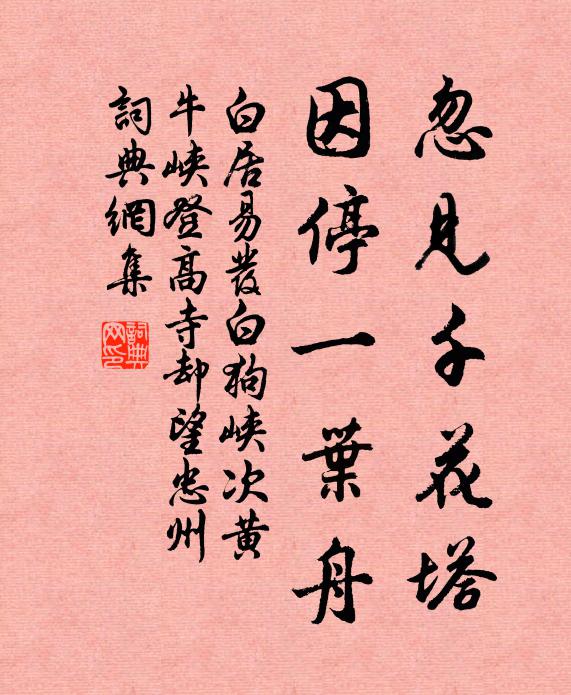 忽見千花塔
因停一葉舟
白居易發白狗峽次黃
牛峽登高寺卻望忠州
詞典網集
詞典网印